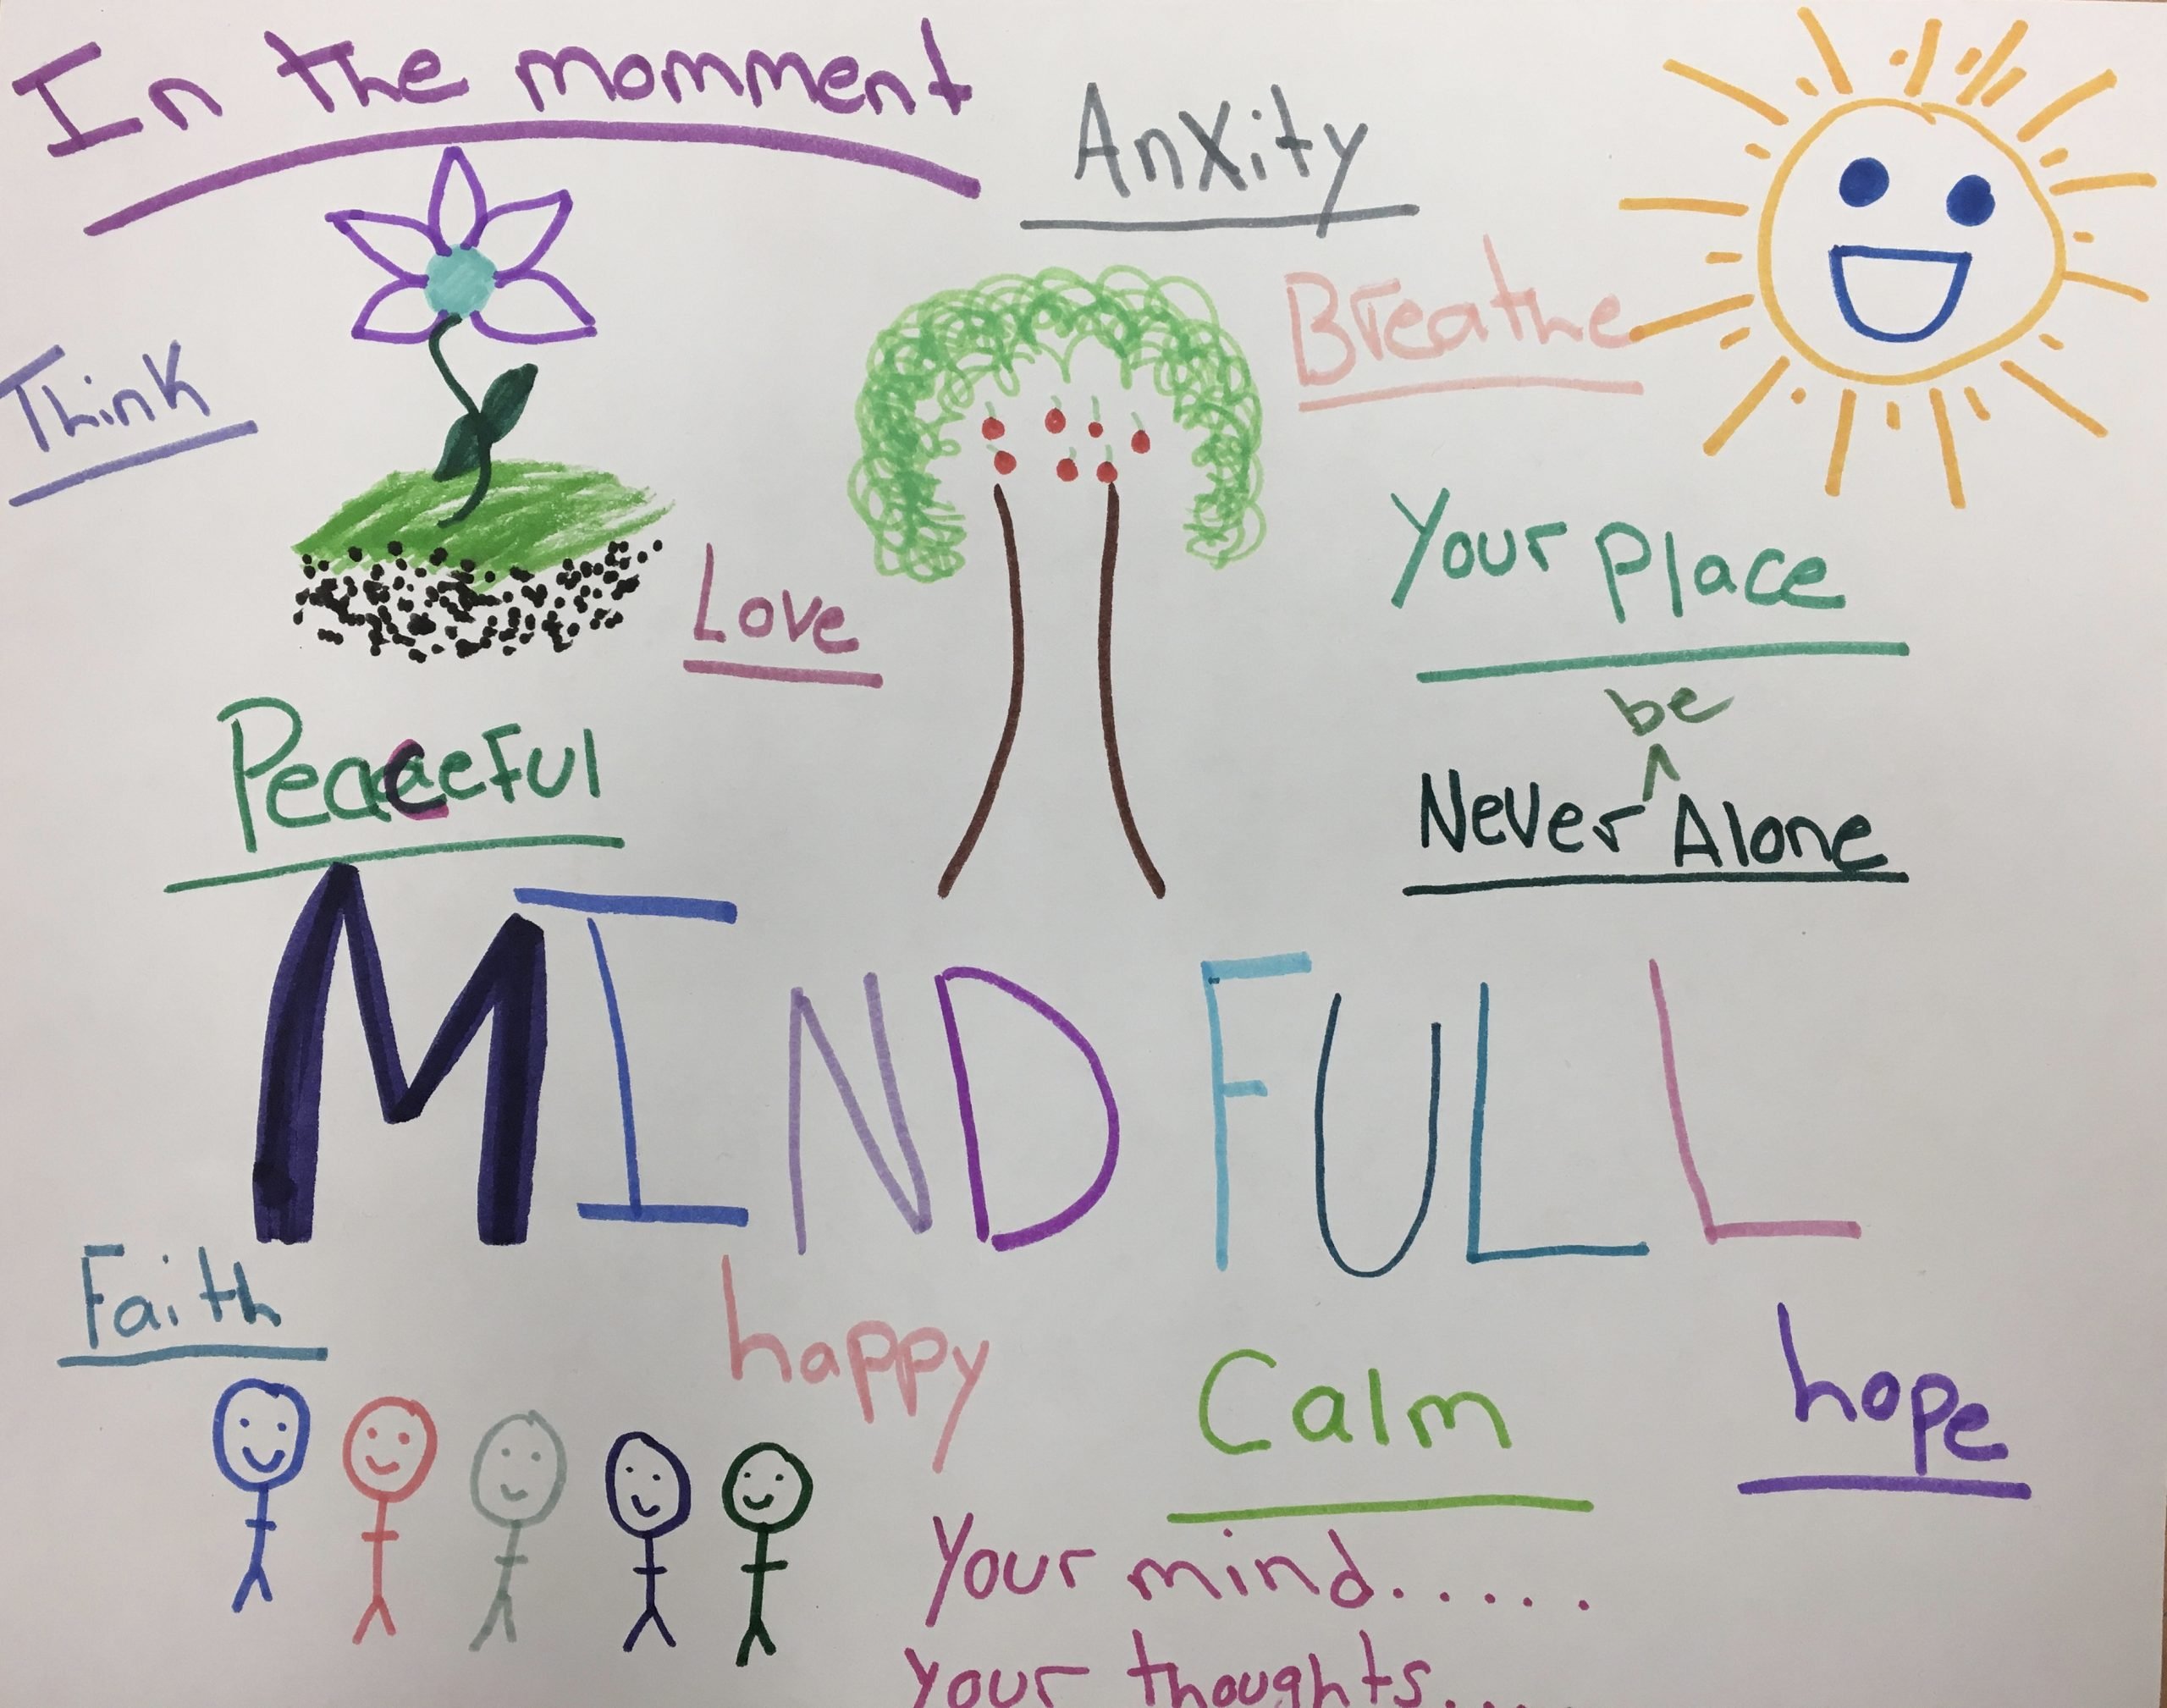 In the momment
Anxity
Breathe
Think
Your place
Love
be
Never ^ Alone
Peaceful
MINDFULL
Faith
happy
Calm
hope
Your mind......
your thoughts.....